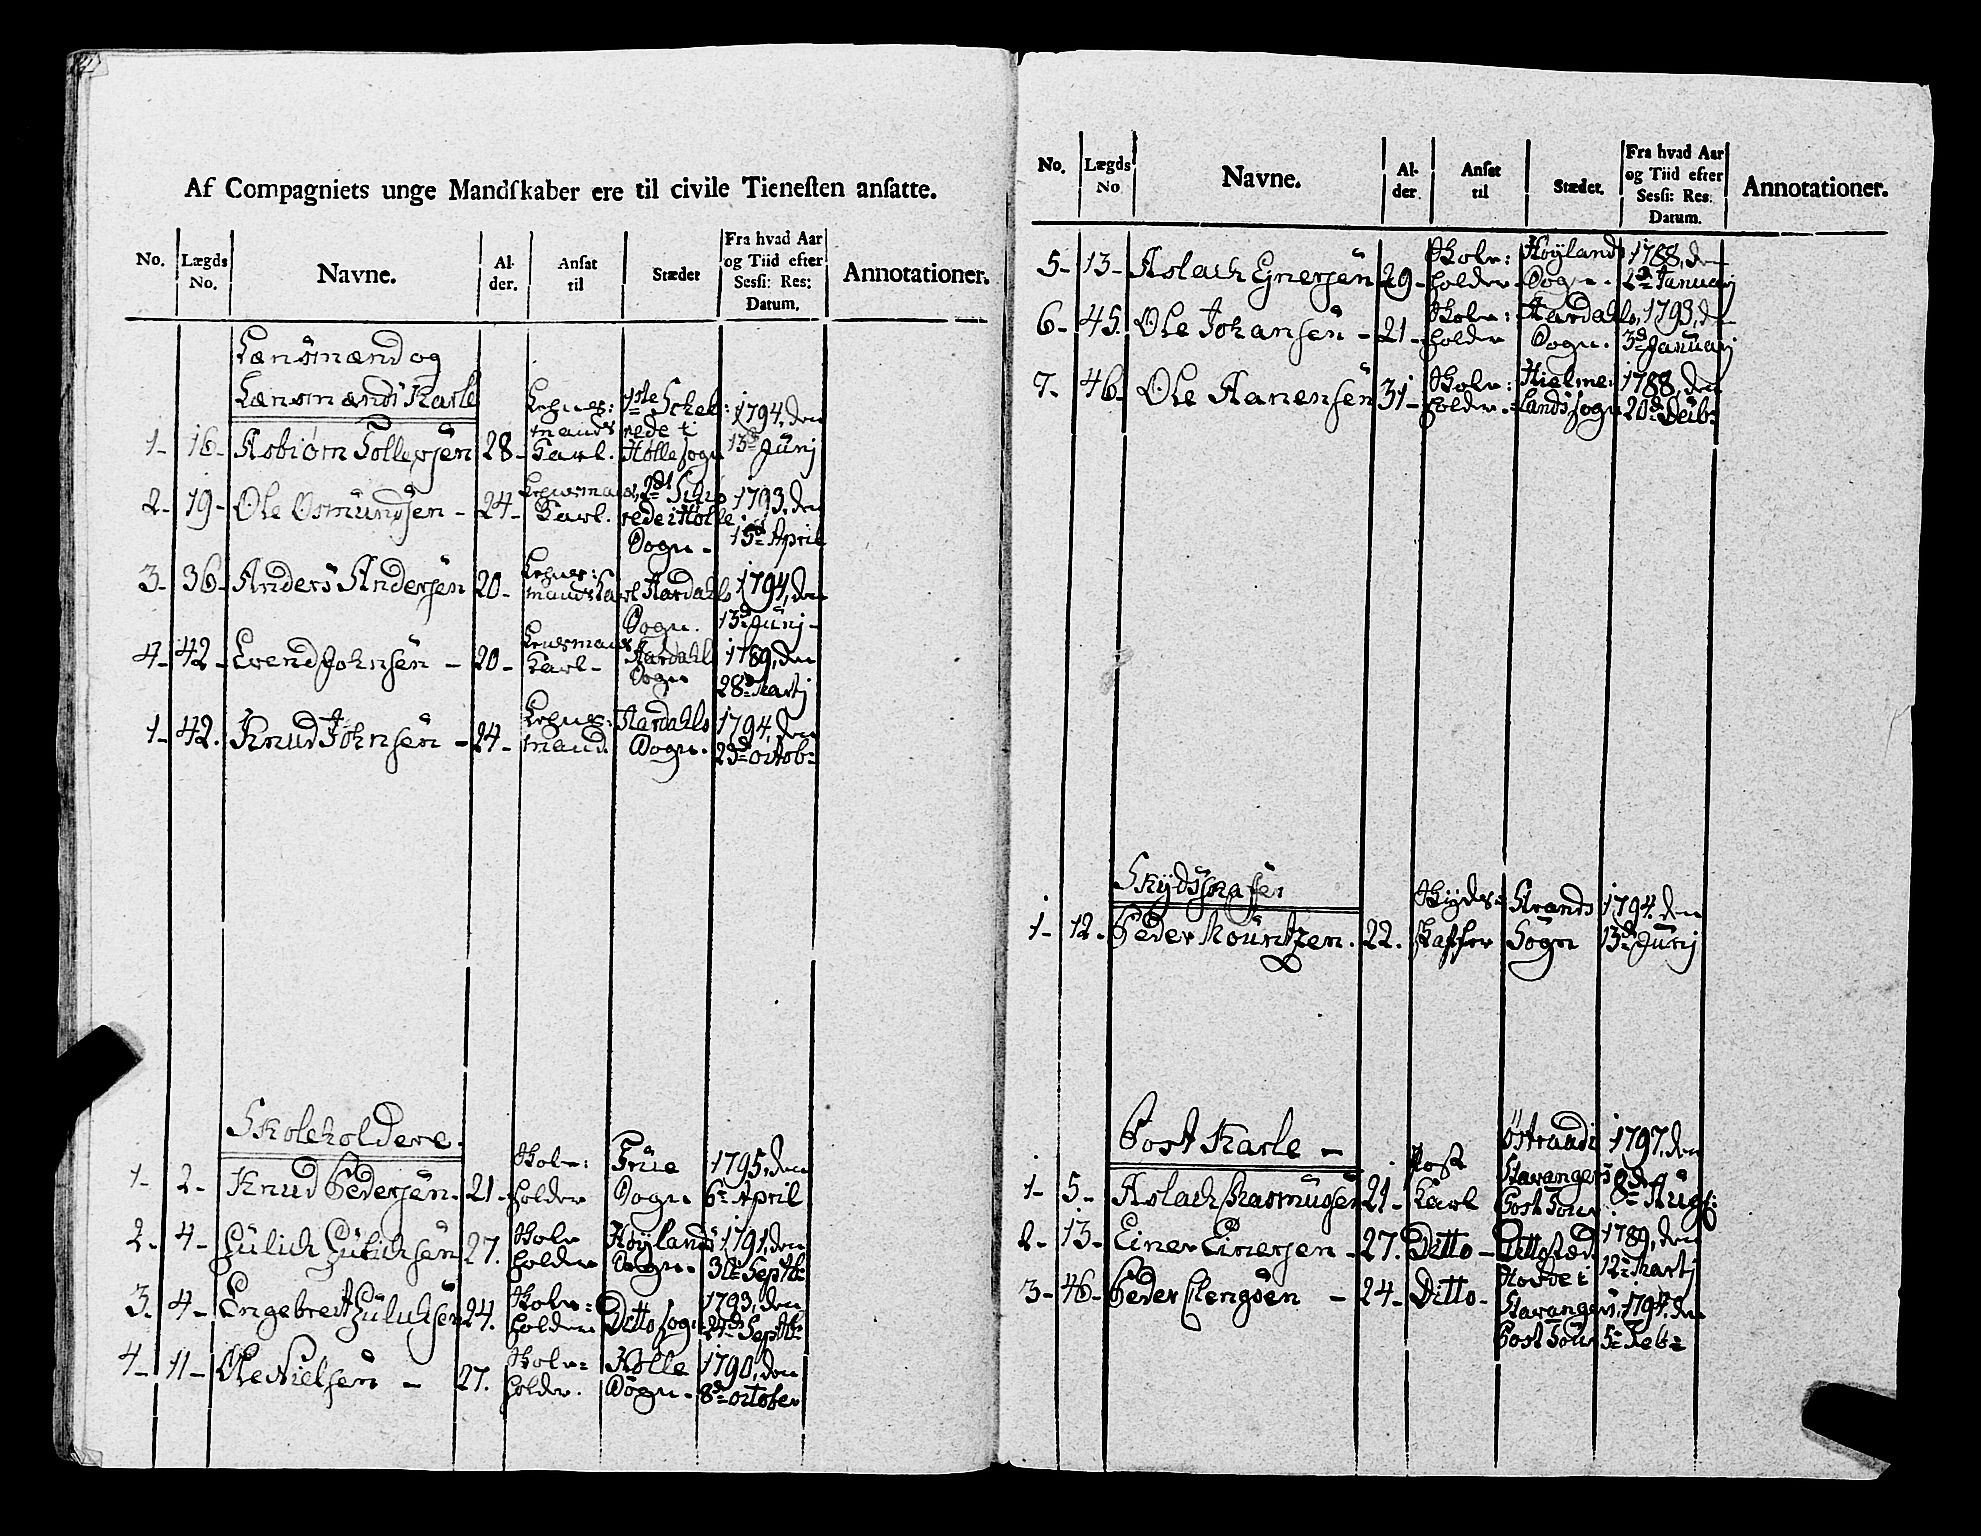 Af Compagniets unge Mandſkaber ere til civile Tieneſten anſatte.
No. Lægds No. Navne. Al- der. Anſat til Stædet Fra hvad Aar og Tiid efter Seſſi: Res: Datum. Annotationer.
Lænsmænd og
Lænsmænds Karle
1- 16- Asbiørn Tollersen 28- Lehns: mands Karl. 1ste Schib: rede i Holle sogn 1794, den 13de Junj
2- 19- Ole Osmundsen - 24- Lehnsmands Karl. 2det Schib rede i Holle Sogn - 1793, den 15de April
3- 36- Anders Andersen 20- Lehns: mands Karl Aardahls Sogn. 1794, den 13de Junj -
4- 42- Evend Johnsen - 20- Lensmands Karl - Aardahls Sogn 1789, den 28de Martj
1- 42. Knud Johnsen - 24- Lehns: mand. Aardahls Sogn. 1794, den 23de octob:
Skoleholdere.
1- 2- Knud Pedersen. 21- Skole: holder Frue Sogn 1795, den 6te April
2- 4- Gülich Gülichsen 27. Skole holder Høylands Sogn. 1791, den 30te Septb:
3. 4- Engebret Gülichsen 24. Skole: holder Ditto sogn 1793, den 24de Septb:
4- 11- Ole Nielsen - 27. Skole: holder. Holle Sogn - 1790, den 8de october
No. Lægds No Navne. Al- der. Anſat til Stædet. Fra hvad Aar og Tiid efter Seſſi: Res: Datum. Annotationer.
5- 13- Aslach Ejnersen 29- Skole: holder - Høylands Sogn. 1788, den 2den Januarj
6- 45. Ole Johansen - 21- Skole: holder Aardahls Sogn. 1793, den 3de Januarj
7- 46- Ole Aanensen 31- Skole: holder. Hielme: lands sogn 1788, den 20de
Skydsskaffer
1- 12- Peder Mountzen. 22. Skyds: skaffer Strands Sogn 1794, den 13de Junj
Post Karle -
1- 5- Aslach Rasmussen 21- Post Karl Østraadt Stavangers Post Tour 1797, den 8de Augs:
2- 13- Einer Einersen - 27. Ditto - Ditto stæd 1789, den 12te Martj
3- 46- Peder - 24- Ditto- i Stavangers Post Tour 1794, den 5te Feb: